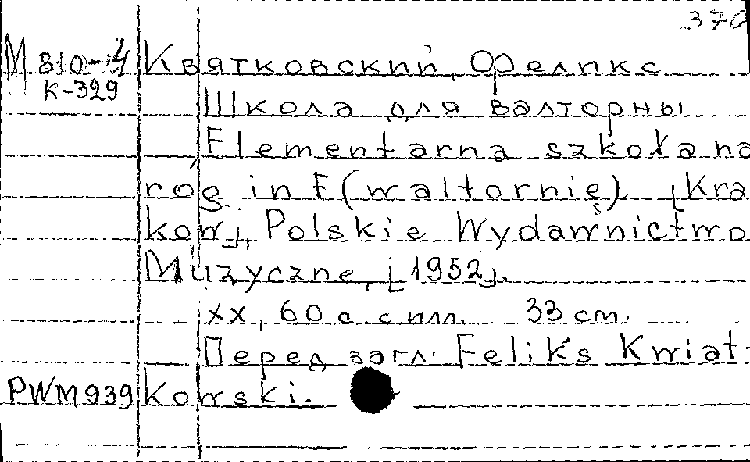 370
М 810-4 Квятковский, Феликс
К-329
Школа для валторны
Elementarna szkoła na
róg in F (waltornię). [Kra
ków], Polskie Wydawnictwo
Muzyczne, [1952].
xx, 60 с. с илл. 33 см.
Перед загл. Feliks Kwiat-
PWM939 kowski.